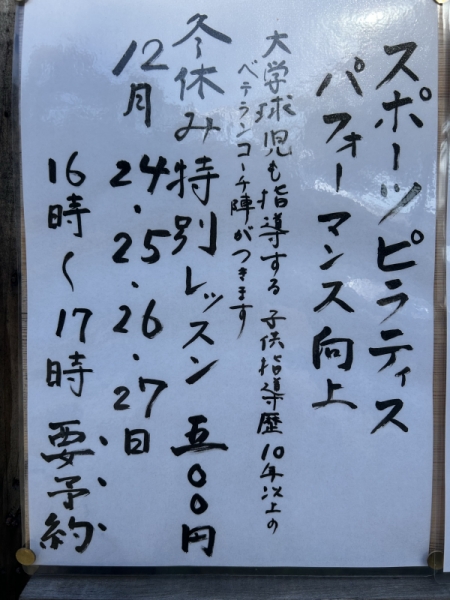 スポーツピラティス
パフォーマンス向上
大学球児も指導する 子供指導歴10年以上の
ベテランコーチ陣がつきます
冬休み特別レッスン 五〇〇円
12月24.25.26.27日
16時〜17時 要予約